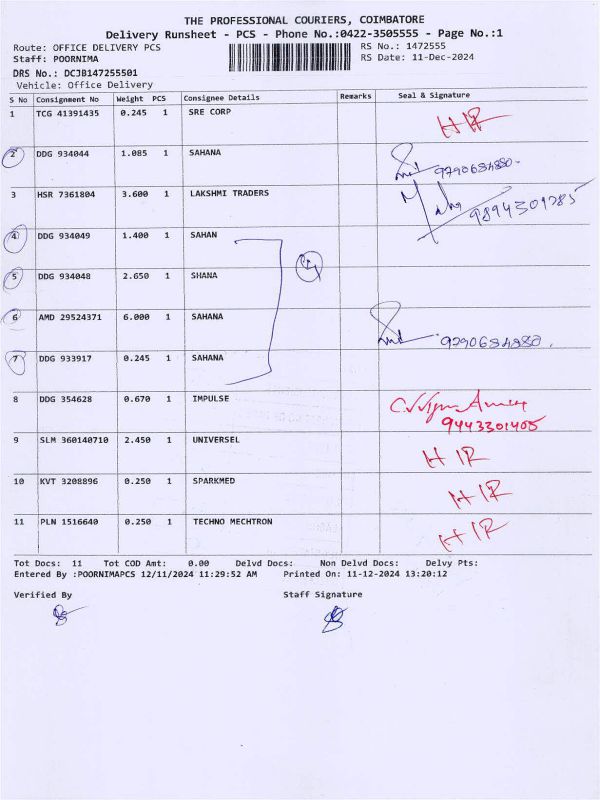 THE PROFESSIONAL COURIERS, COIMBATORE
Delivery Runsheet - PCS - Phone No.:0422-3505555 - Page No.:1
Route: OFFICE DELIVERY PCS RS No.: 1472555
Staff: POORNIMA RS Date: 11-Dec-2024
DRS No.: DCJB147255501
Vehicle: Office Delivery
S No Consignment No Weight PCS Consignee Details Remarks Seal & Signature
1 TCG 41391435 0.245 1 SRE CORP
2 DDG 934044 1.085 1 SAHANA
3 HSR 7361804 3.600 1 LAKSHMI TRADERS 9894301785
4 DDG 934049 1.400 1 SAHAN
5 DDG 934048 2.650 1 SHANA
6 AMD 29524371 6.000 1 SAHANA
7 DDG 933917 0.245 1 SAHANA
8 DDG 354628 0.670 1 IMPULSE
9443301405
9 SLM 360140710 2.450 1 UNIVERSEL HIR
10 KVT 3208896 0.250 1 SPARKMED HIR
11 PLN 1516640 0.250 1 TECHNO MECHTRON HIR
Tot Docs: 11 Tot COD Amt: 0.00 Delvd Docs: Non Delvd Docs: Delvy Pts:
Entered By :POORNIMAPCS 12/11/2024 11:29:52 AM Printed On: 11-12-2024 13:20:12
Verified By Staff Signature